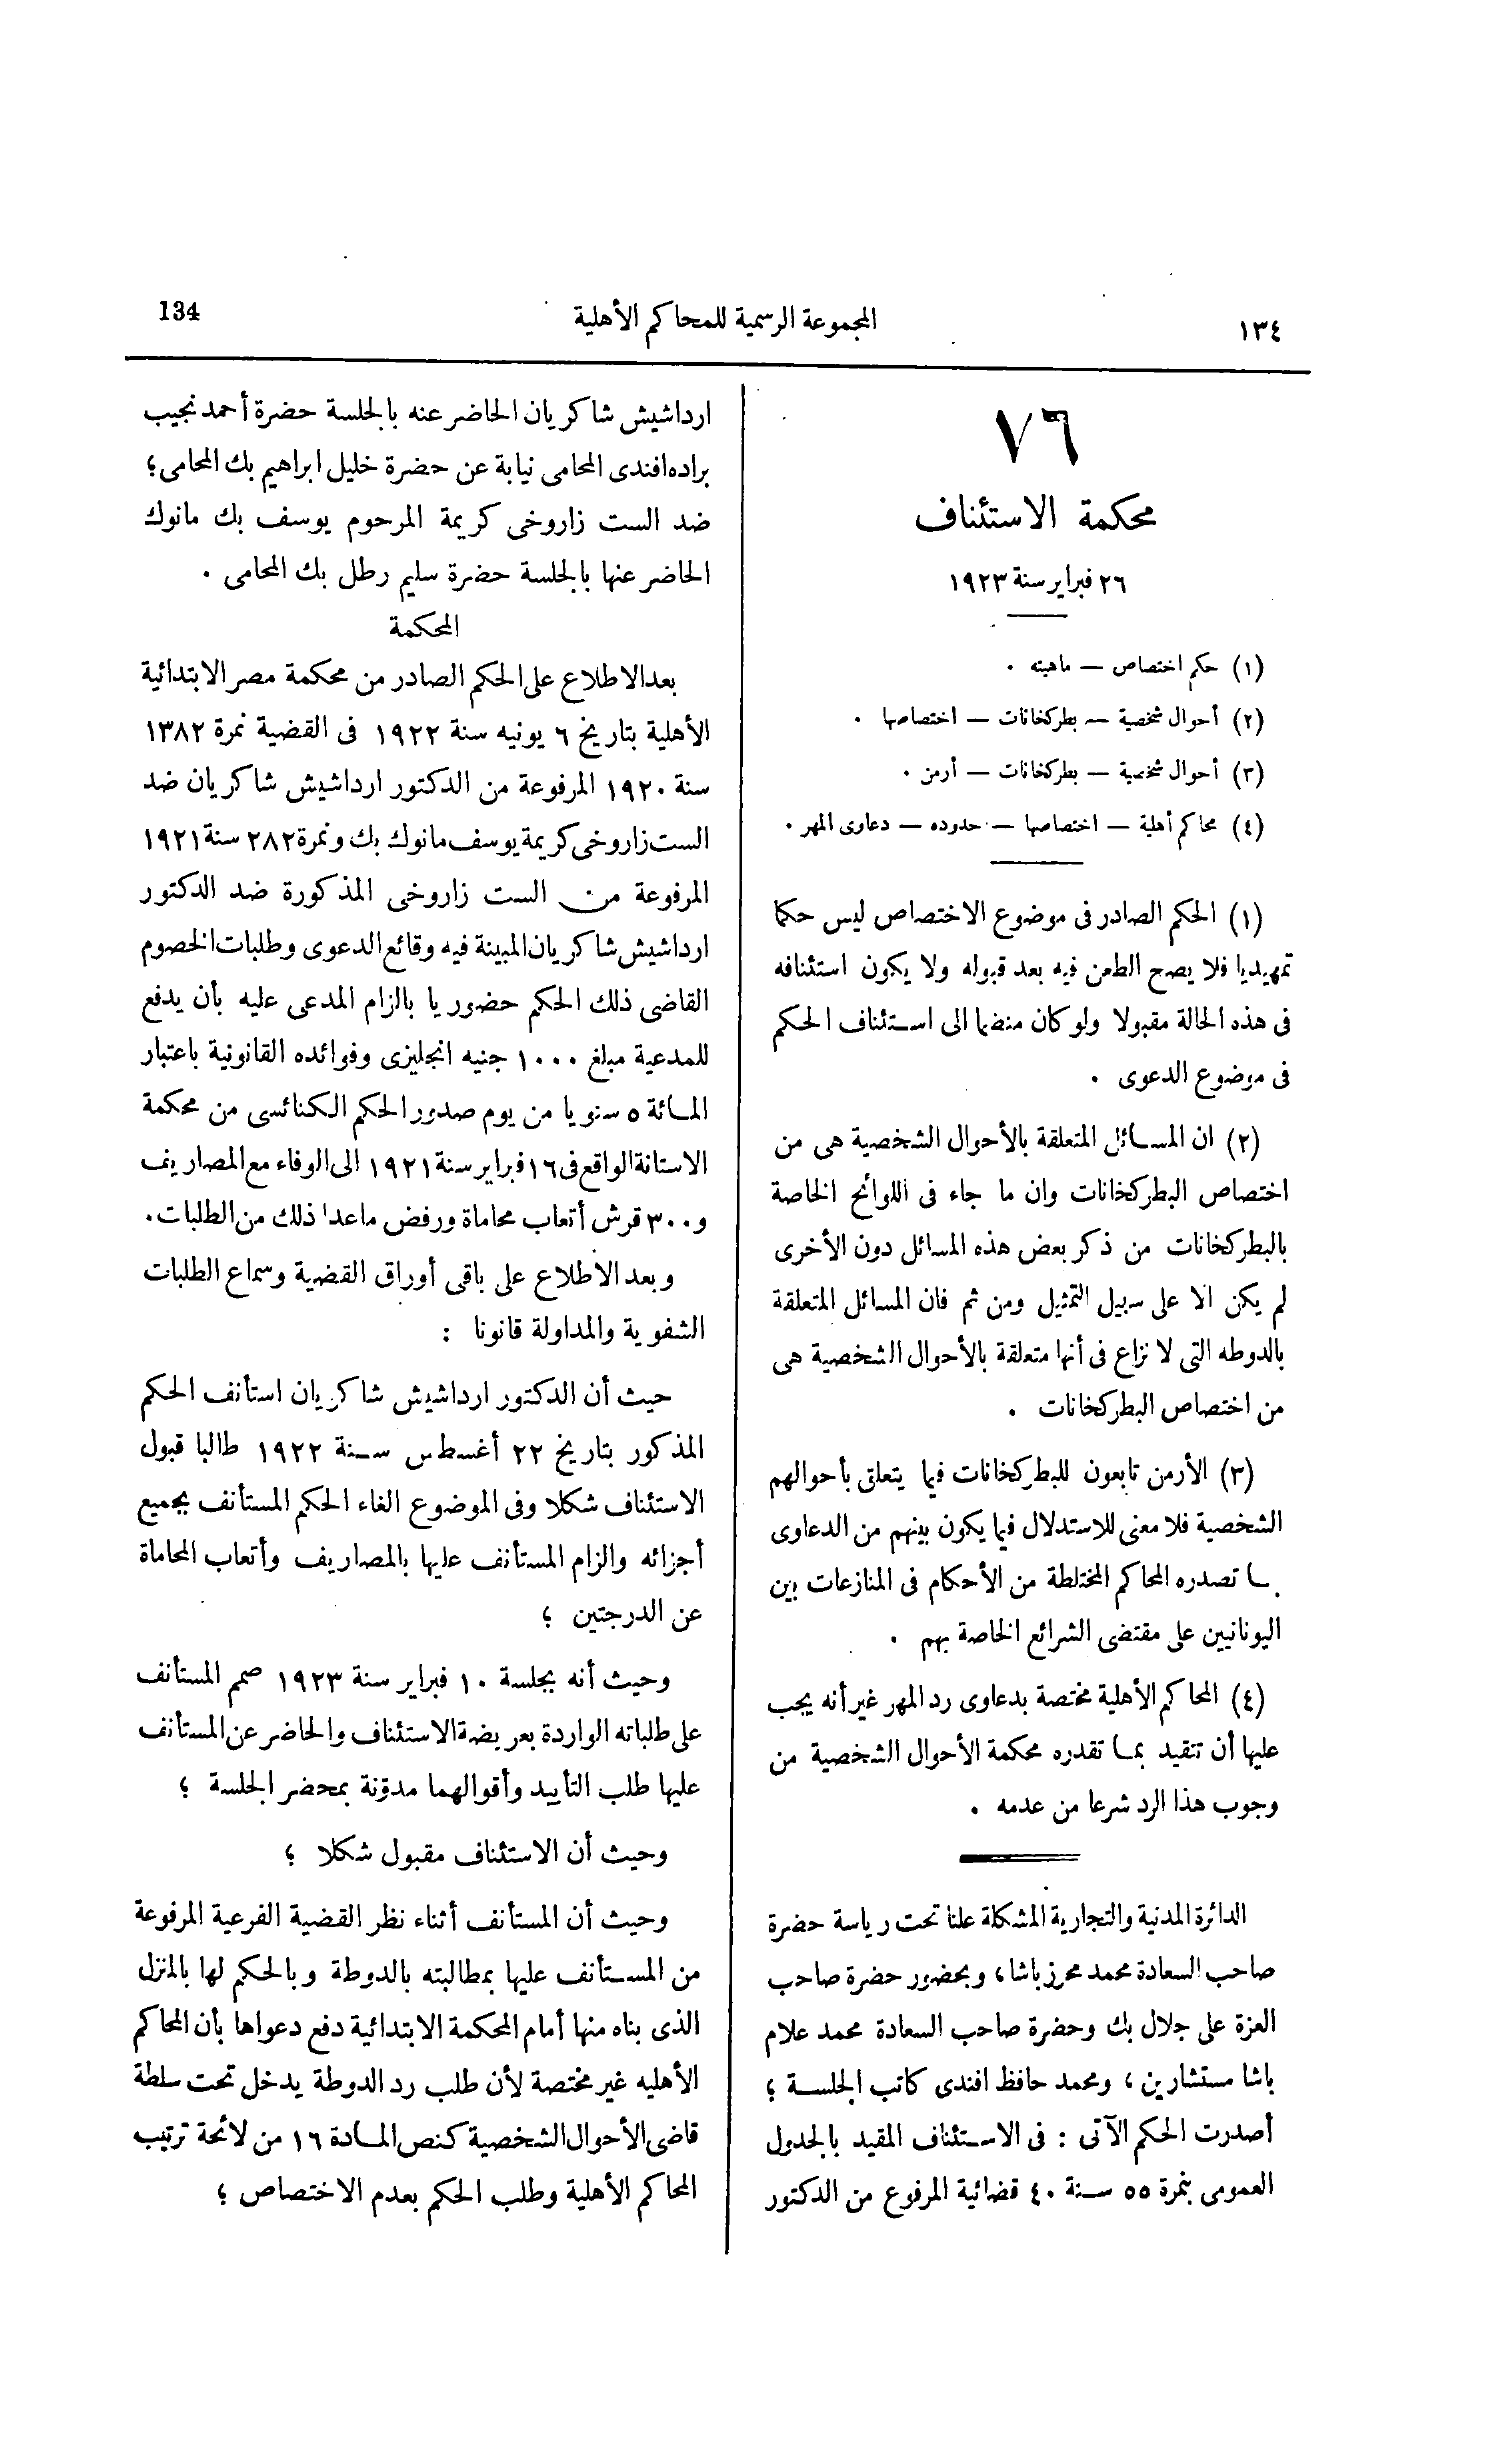 ١٣٤
المجموعة الرسمية للمحاكم الأهلية
134
٧٦
محكمة الاستئناف
٢٦ فبراير سنة ١٩٢٣
(١) حكم اختصاص — ماهيته .
(٢) أحوال شخصية — بطركخانات — اختصاصها .
(٣) أحوال شخصية — بطركخانات — أرمن .
(٤) محاكم أهلية — اختصاصها — حدوده — دعاوى المهر .
(١) الحكم الصادر فى موضوع الاختصاص ليس حكما
تمهيديا فلا يصح الطعن فيه بعد قبوله ولا يكون استئنافه
فى هذه الحالة مقبولا ولو كان منضما الى استئناف الحكم
فى موضوع الدعوى .
(٢) ان المسائل المتعلقة بالأحوال الشخصية هى من
اختصاص البطركخانات وان ما جاء فى اللوائح الخاصة
بالبطركخانات من ذكر بعض هذه المسائل دون الأخرى
لم يكن الا على سبيل التمثيل ومن ثم فان المسائل المتعلقة
بالدوطه التى لا نزاع فى أنها متعلقة بالأحوال الشخصية هى
من اختصاص البطركخانات .
(٣) الأرمن تابعون للبطركخانات فيما يتعلق بأحوالهم
الشخصية فلا معنى للاستدلال فيما يكون بينهم من الدعاوى
بما تصدره المحاكم المختلطة من الأحكام فى المنازعات بين
اليونانيين على مقتضى الشرائع الخاصة بهم .
(٤) المحاكم الأهلية مختصة بدعاوى رد المهر غير أنه يجب
عليها أن تتقيد بما تقدره محكمة الأحوال الشخصية من
وجوب هذا الرد شرعا من عدمه .
الدائرة المدنية والتجارية المشكلة علنا تحت رياسة حضرة
صاحب السعادة محمد محرز باشا، وبحضور حضرة صاحب
العزة على جلال بك وحضرة صاحب السعادة محمد علام
باشا مستشارين ، ومحمد حافظ افندى كاتب الجلسة ؛
أصدرت الحكم الآتى : فى الاستئناف المقيد بالجدول
العمومى بنمرة ٥٥ سنة ٤٠ قضائية المرفوع من الدكتور
ارداشيش شاكريان الحاضر عنه بالجلسة حضرة أحمد نجيب
براده افندى المحامى نيابة عن حضرة خليل ابراهيم بك المحامى ؛
ضد الست زاروخى كريمة المرحوم يوسف بك مانوك
الحاضر عنها بالجلسة حضرة سليم رطل بك المحامى .
المحكمة
بعد الاطلاع على الحكم الصادر من محكمة مصر الابتدائية
الأهلية بتاريخ ٦ يونيه سنة ١٩٢٢ فى القضية نمرة ١٣٨٢
سنة ١٩٢٠ المرفوعة من الدكتور ارداشيش شاكريان ضد
الست زاروخى كريمة يوسف مانوك بك ونمرة ٢٨٢ سنة ١٩٢١
المرفوعة من الست زاروخى المذكورة ضد الدكتور
ارداشيش شاكريان المبينة فيه وقائع الدعوى وطلبات الخصوم
القاضى ذلك الحكم حضوريا بالزام المدعى عليه بأن يدفع
للمدعية مبلغ ١٠٠٠ جنيه انجليزى وفوائده القانونية باعتبار
المائة ٥ سنويا من يوم صدور الحكم الكنائسى من محكمة
الاستانة الواقع فى ١٦ فبراير سنة ١٩٢١ الى الوفاء مع المصاريف
و ٣٠٠ قرش أتعاب محاماة ورفض ماعدا ذلك من الطلبات .
وبعد الاطلاع على باقى أوراق القضية وسماع الطلبات
الشفوية والمداولة قانونا :
حيث أن الدكتور ارداشيش شاكريان استأنف الحكم
المذكور بتاريخ ٢٢ أغسطس سنة ١٩٢٢ طالبا قبول
الاستئناف شكلا وفى الموضوع الغاء الحكم المستأنف بجميع
أجزائه والزام المستأنف عليها بالمصاريف وأتعاب المحاماة
عن الدرجتين ؛
وحيث أنه بجلسة ١٠ فبراير سنة ١٩٢٣ صمم المستأنف
على طلباته الواردة بعريضة الاستئناف والحاضر عن المستأنف
عليها طلب التأييد وأقوالهما مدوّنة بمحضر الجلسة ؛
وحيث أن الاستئناف مقبول شكلا ؛
وحيث أن المستأنف أثناء نظر القضية الفرعية المرفوعة
من المستأنف عليها بمطالبته بالدوطة وبالحكم لها بالمنزل
الذى بناه منها أمام المحكمة الابتدائية دفع دعواها بأن المحاكم
الأهليه غير مختصة لأن طلب رد الدوطة يدخل تحت سلطة
قاضى الأحوال الشخصية كنص المادة ١٦ من لائحة ترتيب
المحاكم الأهلية وطلب الحكم بعدم الاختصاص ؛